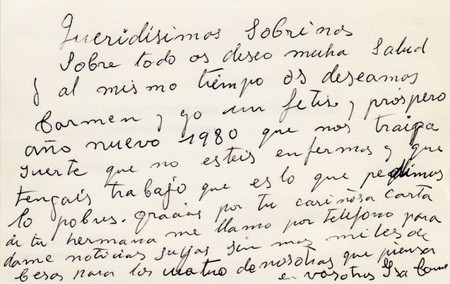 Queridisimos Sobrinos
Sobre todo os deseo muha Salud
y al mismo tiempo os deseamos
Carmen y yo un felis, y próspero
año nuevo 1980 que nos traiga
suerte que no esteis enfermos y que
tengais trabajo que es lo que pedimos
lo pobres. gracias por tu cariñosa carta
de tu hermana me llamo por teléfono para
darme noticias suyas sin mas miles de
besos para los cuatro de nosotras que piensa
en vosotros Isa Carme